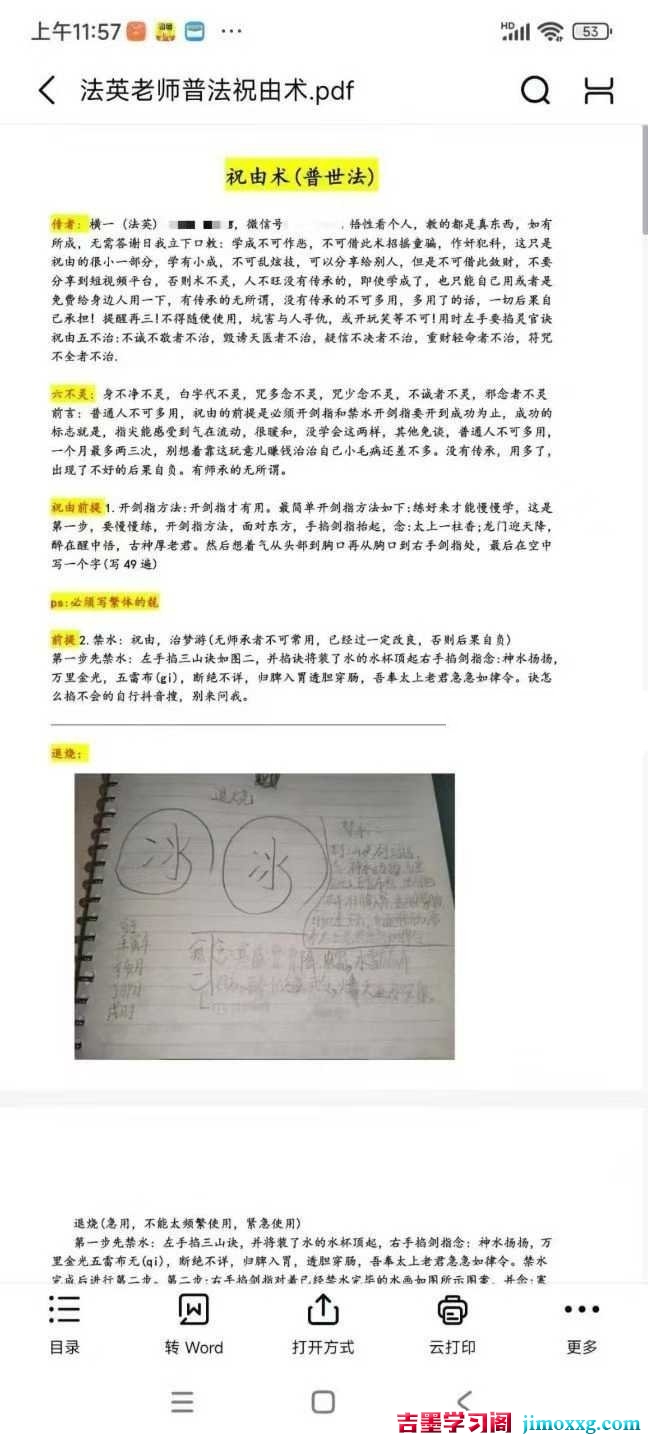 上午11:57
HD
53
法英老师普法祝由术.pdf
祝由术(普世法)
传者:横一 (法英) ,微信号 ,悟性看个人,教的都是真东西,如有
所成,无需答谢日我立下口教:学成不可作恶,不可借此术招摇童骗,作奸犯科,这只是
祝由的很小一部分,学有小成,不可乱炫技,可以分享给别人,但是不可借此敛财,不要
分享到短视频平台,否则术不灵,人不旺没有传承的,即使学成了,也只能自己用或者是
免费给身边人用一下,有传承的无所谓,没有传承的不可多用,多用了的话,一切后果自
己承担!提醒再三!不得随便使用,坑害与人寻仇,或开玩笑等不可!用时左手要掐灵官诀
祝由五不治:不诚不敬者不治,毁谤天医者不治,疑信不决者不治,重财轻命者不治,符咒
不全者不治.
六不灵:身不净不灵,白字代不灵,咒多念不灵,咒少念不灵,不诚者不灵,邪念者不灵
前言:普通人不可多用,祝由的前提是必须开剑指和禁水开剑指要开到成功为止,成功的
标志就是,指尖能感受到气在流动,很暖和,没学会这两样,其他免谈,普通人不可多用,
一个月最多两三次,别想着靠这玩意儿赚钱治治自己小毛病还差不多。没有传承,用多了,
出现了不好的后果自负。有师承的无所谓。
祝由前提1.开剑指方法:开剑指才有用。最简单开剑指方法如下:练好来才能慢慢学,这是
第一步,要慢慢练,开剑指方法,面对东方,手掐剑指抬起,念:太上一柱香;龙门迎天降,
醉在醒中悟,古神厚老君。然后想着气从头部到胸口再从胸口到右手剑指处,最后在空中
写一个字(写49遍)
ps:必须写繁体的
前提2.禁水:祝由,治梦游(无师承者不可常用,已经过一定改良,否则后果自负)
第一步先禁水:左手掐三山诀如图二,并掐诀将装了水的水杯顶起右手掐剑指念:神水扬扬,
万里金光,五雷布(gi),断绝不详,归脾入胃透胆穿肠,吾奉太上老君急急如律令。诀怎
么掐不会的自行抖音搜,别来问我。
退烧:
退烧
冰 冰
退烧(急用,不能太频繁使用,紧急使用)
第一步先禁水:左手掐三山诀,并将装了水的水杯顶起,右手掐剑指念:神水扬扬,万
里金光五雷布无(qi),断绝不详,归脾入胃,透胆穿肠,吾奉太上老君急急如律令。禁水
完成后进行第二步。第二步:右手掐剑指对着已经禁水完毕的水画如图所示图案,并念:寒
目录
转 Word
打开方式
云打印
更多
吉墨学习阁 jimoxxg.com